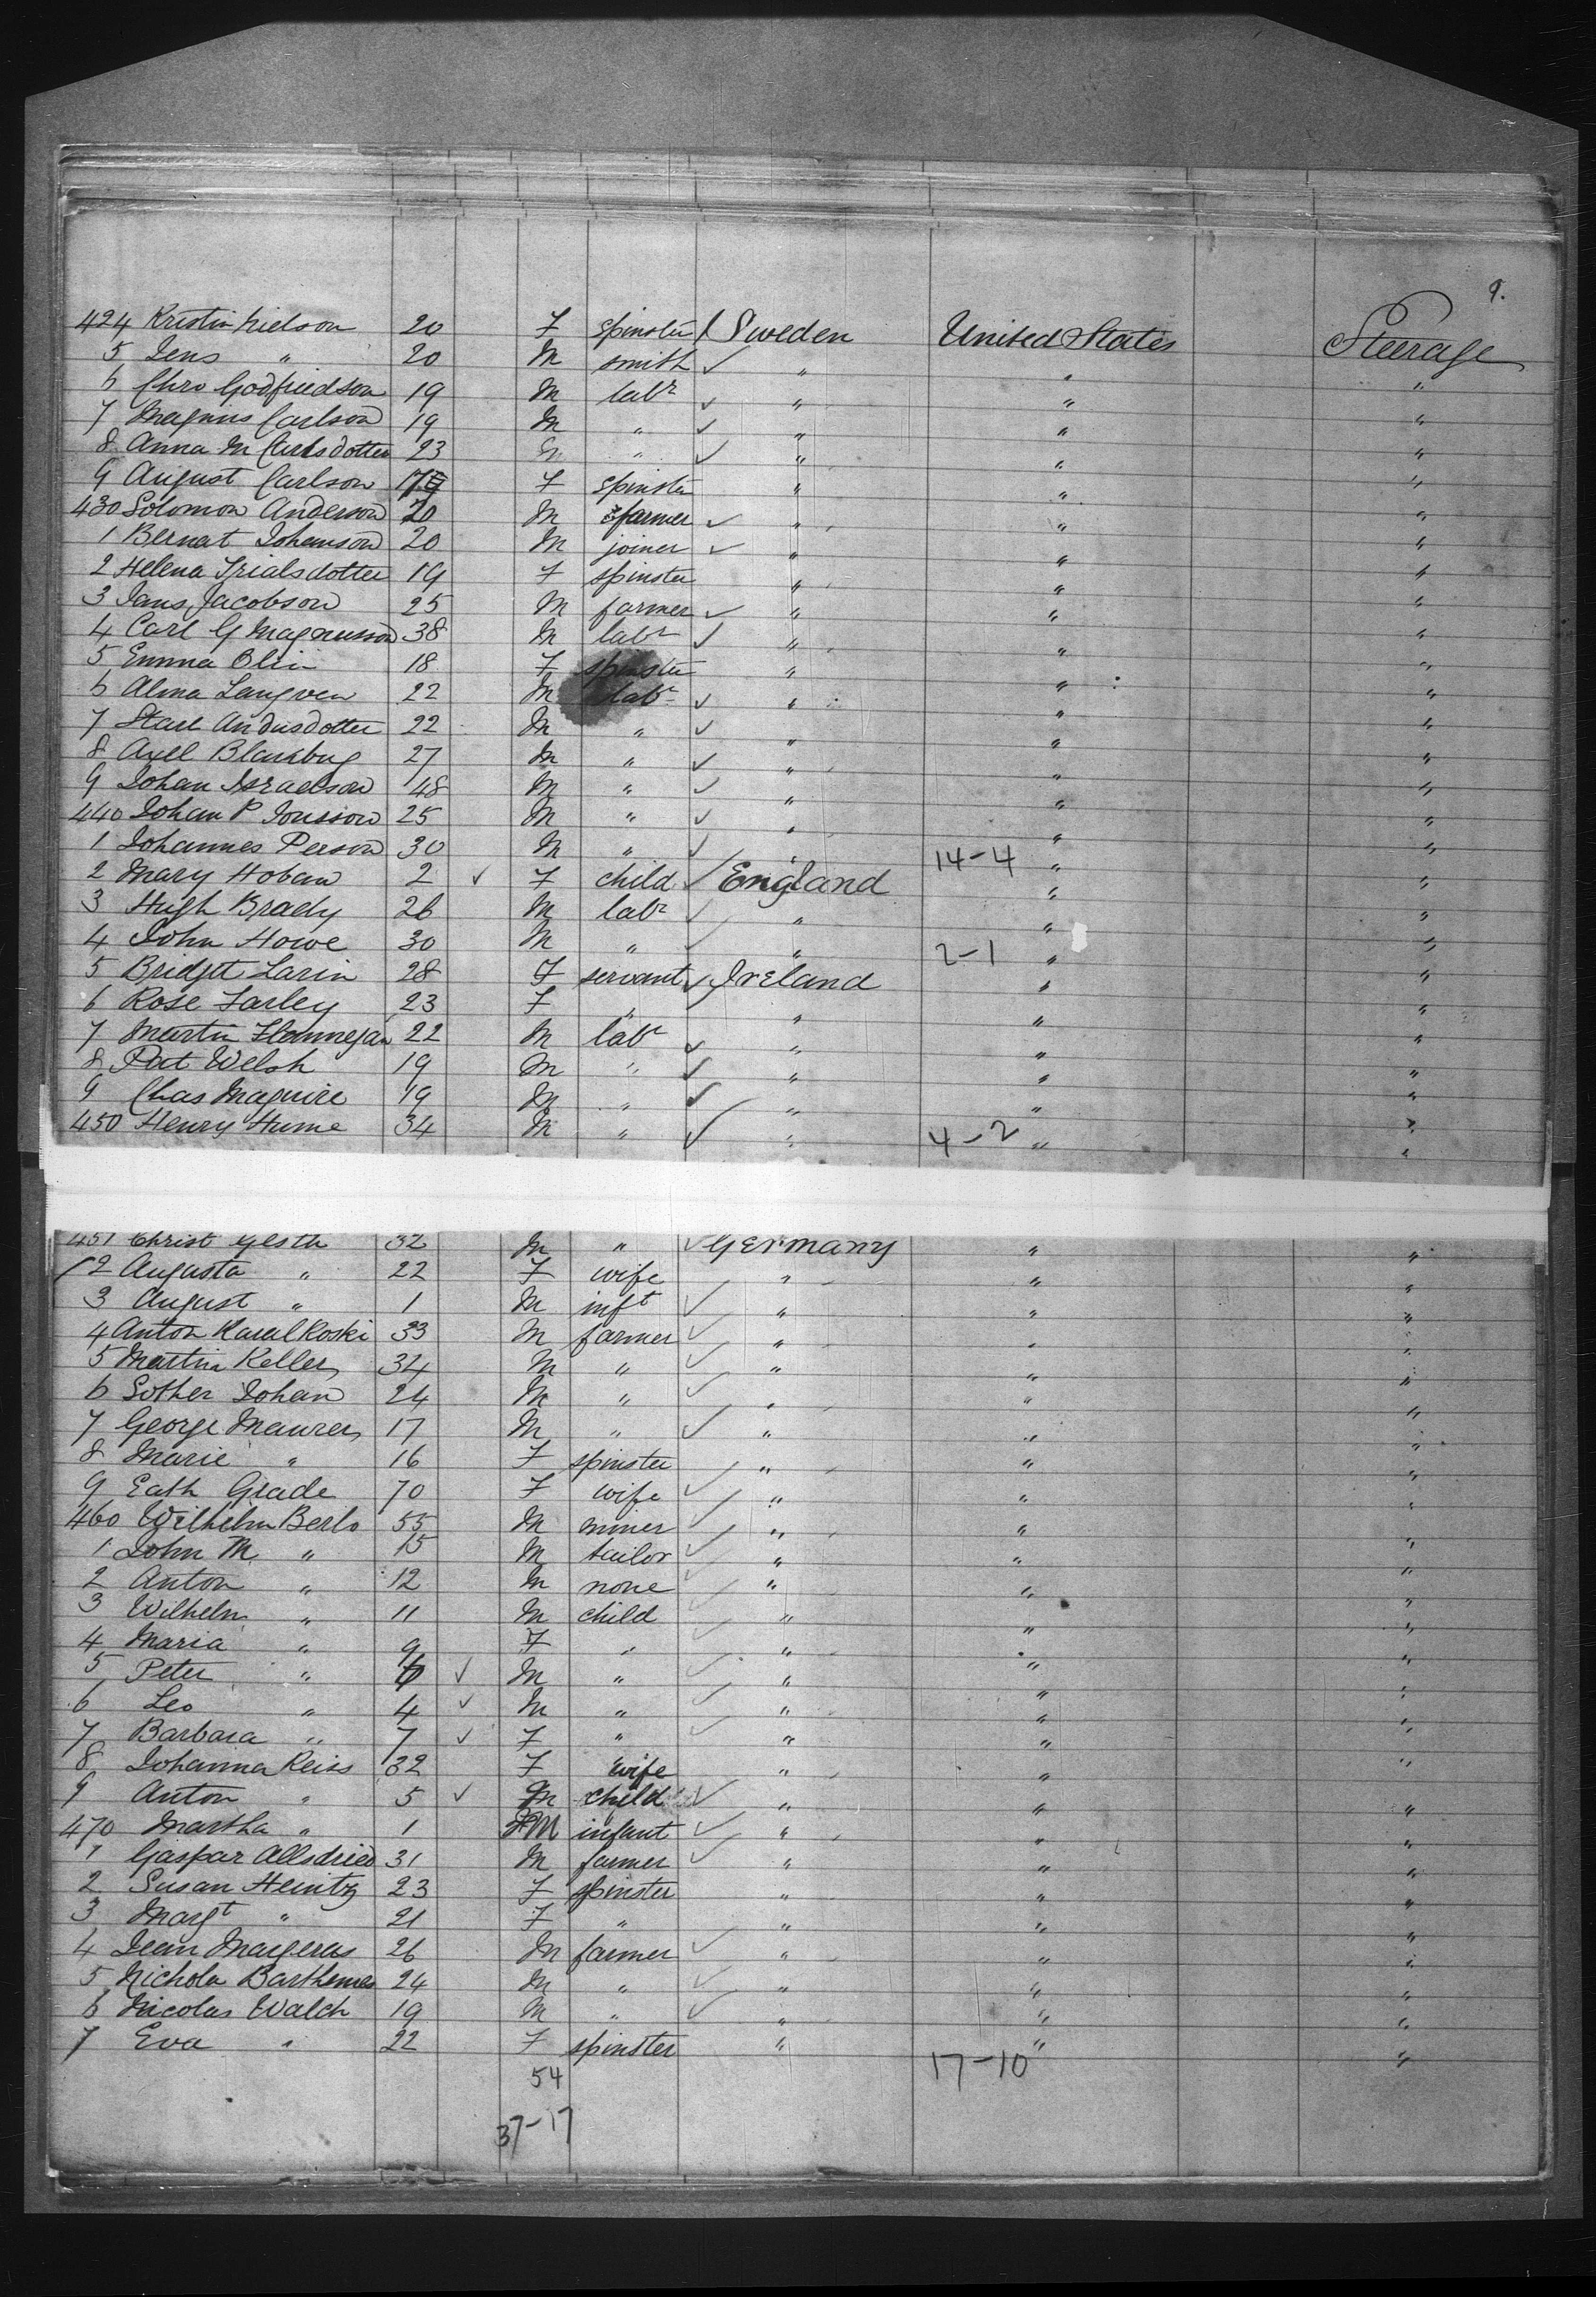 9.
424 Kristin Nielson 20 F spinster Sweden United States Steerage
5 Jens " 20 M smith " " "
6 Chro Godfriedson 19 M labr " " "
7 Magnus Carlson 19 M " " " "
8 Anna M Carlsdotter 23 " " " "
9 August Carlson F spinster " " "
430 Solomon Anderson 20 M farmer " " "
1 Bernat Johanson 20 M joiner " " "
2 Helena Trialsdotter 19 F spinster " " "
3 Jans Jacobson 25 M farmer " " "
4 Carl G Magnusson 38 M labr " " "
5 Emma Olin 18 F spinster " " "
6 Alma Langven 22 M labr " " "
7 Andusdotter 22 M " " " "
8 Axell 27 M " " " "
9 Johan Israelson 48 M " " " "
440 Johan P Jonsson 25 M " " " "
1 Johannes Person 30 M " " 14-4 " "
2 Mary Hoban 2 F child England " "
3 Hugh Brady 26 M labr " " "
4 John Howe 30 M " " 2-1 " "
5 Bridget Larin 28 F servant Ireland " "
6 Rose Farley 23 F " " " "
7 Martin Flannegan 22 M labr " " "
8 Pat Welsh 19 M " " " "
9 Chas Maguire 19 M " " " "
450 Henry Hume 34 M " " 4-2 " "
451 Christ 32 M " Germany " "
2 Augusta " 22 F wife " " "
3 August " 1 M inft " " "
4 Anton 33 M farmer " " "
5 Martin Keller 34 M " " " "
6 Sother Johan 24 M " " " "
7 George Maurer 17 M " " " "
8 Marie " 16 F spinster " " "
9 Cath Grade 70 F wife " " "
460 Wilhelm Berlo 55 M miner " " "
1 John M " 15 M tailor " " "
2 Anton " 12 M none " " "
3 Wilhelm " 11 M child " " "
4 Maria " 9 F " " " "
5 Peter " 6 M " " " "
6 Leo " 4 M " " " "
7 Barbara " 7 F " " " "
8 Johanna Reiss 32 F wife " " "
9 Anton " 5 M child " " "
470 Martha " 1 M infant " " "
1 Gaspar Allsdried 31 M farmer " " "
2 Susan Heintz 23 F spinster " " "
3 Margt " 21 F " " " "
4 Jean Mayeras 26 M farmer " " "
5 Nichola Barthemes 24 M " " " "
6 Nicolas Walch 19 M " " " "
7 Eva " 22 F spinster " " "
54 17-10
37-17